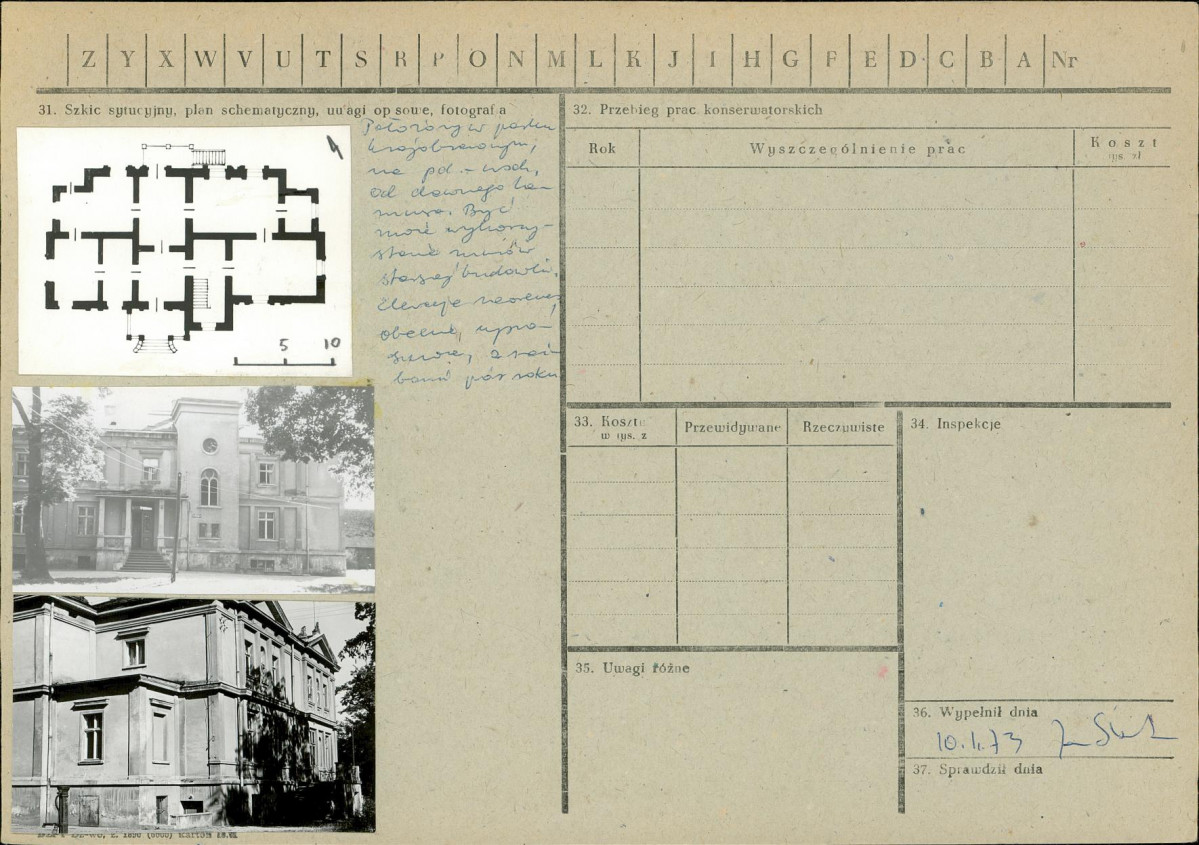 Z Y X W V U T S R P O N M L K J I H G F E D C B A Nr
31. Szkic sytucyjny, plan schematyczny, uwagi opisowe, fotografia
4
5 10
Położony w parku
krajobrazowym,
na pd.-wsch.
od dawnego la-
musa. Być
może wykorzy-
stanie murów
starszej budowli.
Elewacje neorenes.
obecnie, upro-
szczone,
32. Przebieg prac konserwatorskich
Rok
Wyszczególnienie prac
Koszt
tys. zł
33. Koszty
w tys. z
Przewidywane
Rzeczywiste
34. Inspekcje
35. Uwagi różne
36. Wypełnił dnia
10.I.73
37. Sprawdził dnia